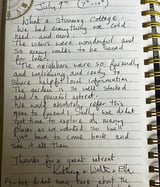 July 9th (7th-10th)
What a stunning Cottage.
We had everything we could
need and more.
The views were wonderful and
so many walks to be had
for later.
The neighbours were so friendly
and welcoming and ready to
share helpful local information.
The garden is so well stocked
and a peaceful retreat.
We would absolutely refer this
gem to friends. Sadly we didn't
get time to explore as many
places as we wanted so we'll
just have to come back and
see it all then
Thanks for a great retreat
Kathryn, Ella
Ps. we didn't even care about the